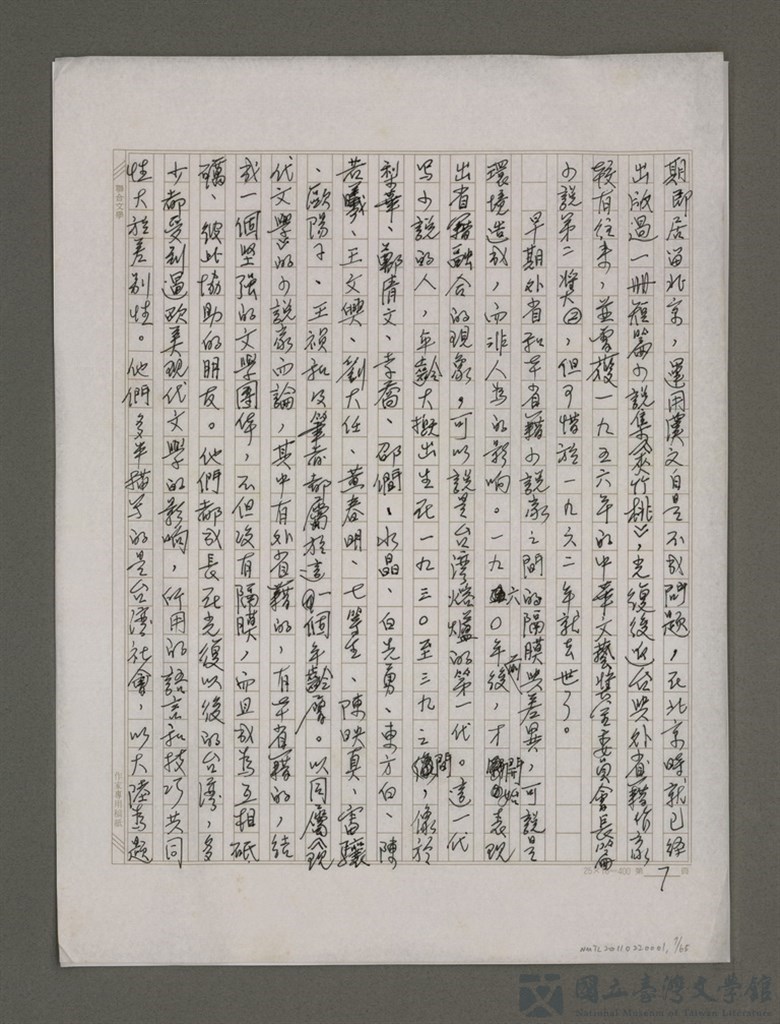 期即居留北京，運用漢文自是不成問題，在北京時就已經
出版過一冊短篇小說集《夾竹桃》，光復後返台與外省籍作家
較有往來，並曾獲一九五六年的中華文藝獎金委員會長篇
小說第二獎，但可惜於一九六二年就去世了。
早期外省和本省籍小說家之間的隔膜與差異，可說是
環境造成，而非人為的影响。一九六〇年前後，才開始表現
出省籍融合的現象，可以說是台灣熔爐的第一代。這一代
寫小說的人，年齡大概出生在一九三〇至三九之間，像於
梨華、鄭清文、李喬、邵僩、水晶、白先勇、東方白、陳
若曦、王文興、劉大任、黃春明、七等生、陳映真、雷驤
、歐陽子、王禎和及筆者都屬於這一個年齡層。以同屬現
代文學的小說家而論，其中有外省籍的，有本省籍的，結
成一個堅強的文學團体，不但沒有隔膜，而且成為互相砥
礪、彼此協助的朋友。他們都成長在光復以後的台灣，多
少都受到過歐美現代文學的影响，所用的語言和技巧共同
性大於差別性。他們多半描寫的是台灣社會，以大陸為題
聯合文學
作家專用稿紙
25×16=400 第 7 頁
NMTL20110220001, 7/65
國立臺灣文學館
National Museum of Taiwan Literature